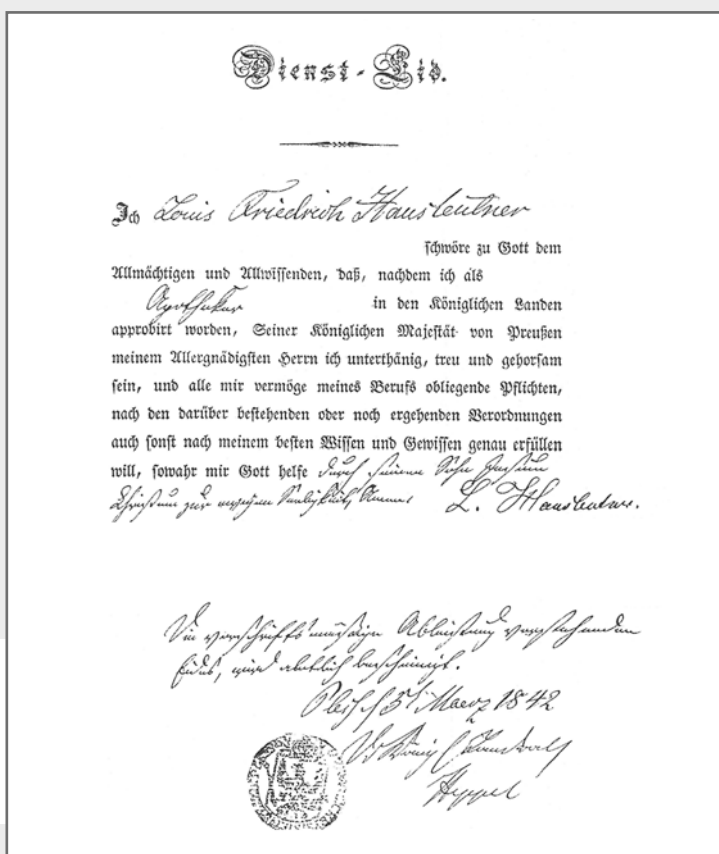 Dienst-Eid.
Ich Louis Friedrich Hausleutner
schwöre zu Gott dem
Allmächtigen und Allwissenden, daß, nachdem ich als
Apotheker in den Königlichen Landen
approbirt worden, Seiner Königlichen Majestät von Preußen
meinem Allergnädigsten Herrn ich unterthänig, treu und gehorsam
sein, und alle mir vermöge meines Berufs obliegende Pflichten,
nach den darüber bestehenden oder noch ergehenden Verordnungen
auch sonst nach meinem besten Wissen und Gewissen genau erfüllen
will, sowahr mir Gott helfe durch seinen Sohn Jesum
Christum zur ewigen Seeligkeit, Amen. L. Hausleutner.
Die vorschriftsmäßige Ableistung vorstehenden
Eides, wird amtlich bescheinigt.
Maerz 1842
Hippel